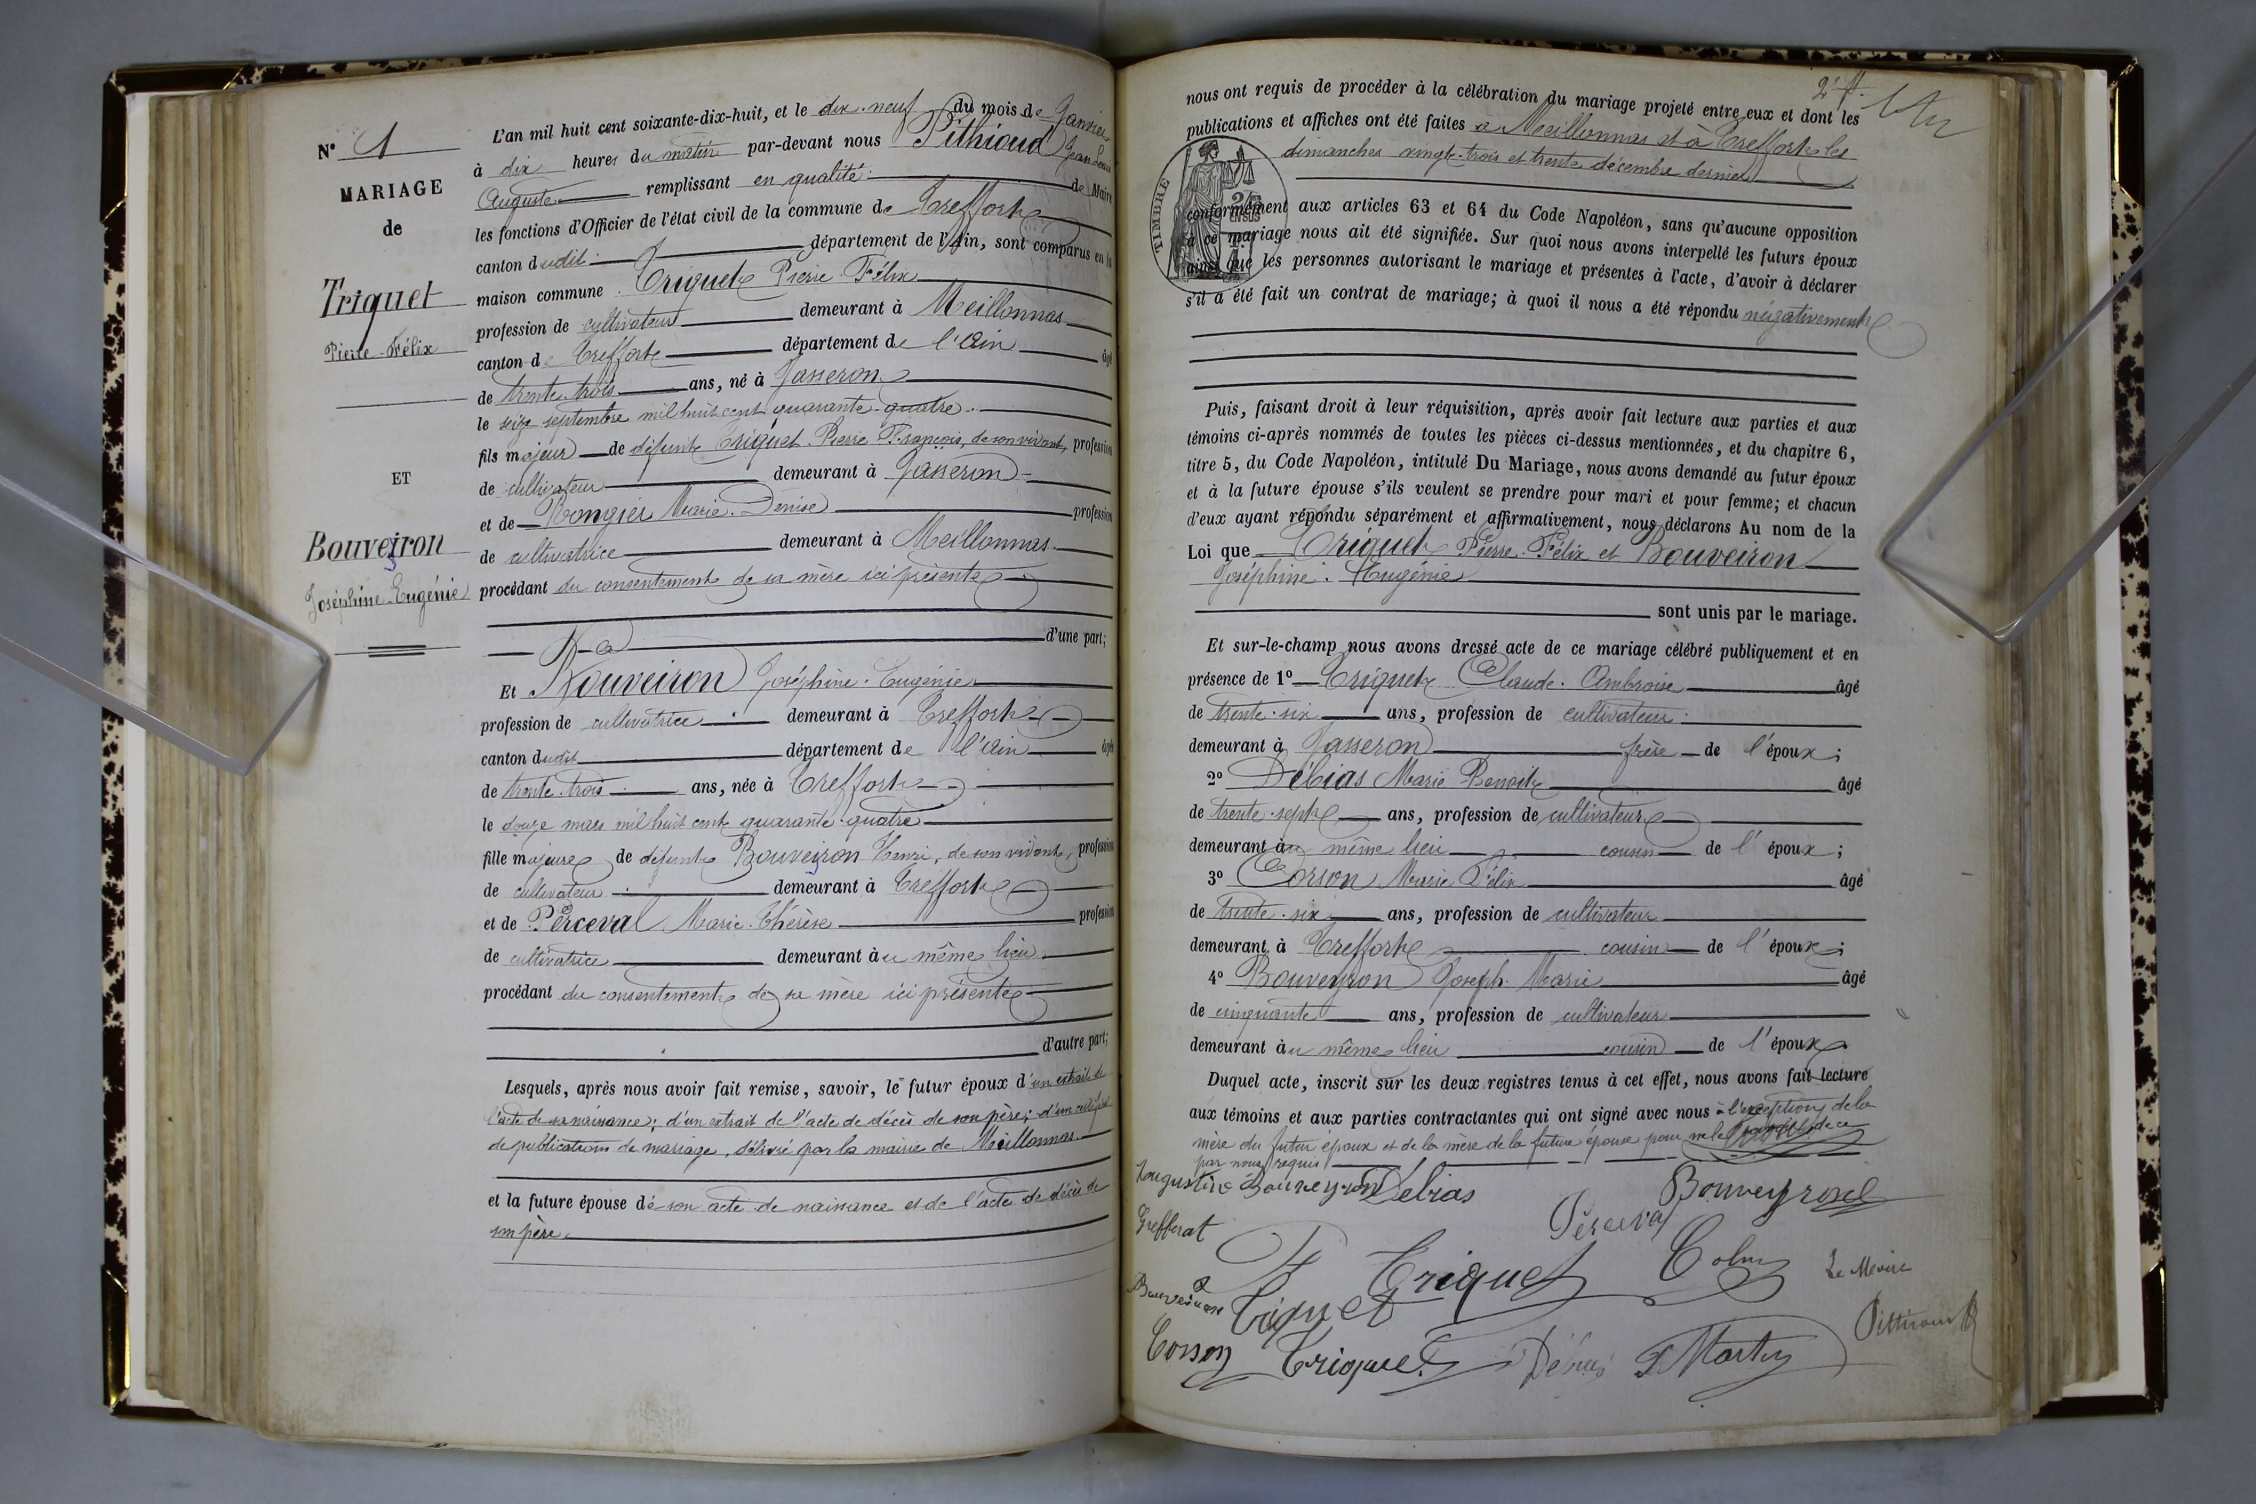 N° 1
MARIAGE
de
Triquet
Pierre-Félix
ET
Bouveiron
Joséphine-Eugénie
L'an mil huit cent soixante-dix-huit, et le dix-neuf du mois de Janvier
à dix heures du matin par-devant nous Pithioud Jean Louis
Auguste remplissant en qualité de Maire
les fonctions d'Officier de l'état civil de la commune de Treffort
canton dudit département de l'Ain, sont comparus en la
maison commune Triquet Pierre Félix
profession de cultivateur demeurant à Meillonnas
canton de Treffort département de l'Ain âgé
de trente-trois ans, né à Jasseron
le seize septembre mil huit cent quarante-quatre
fils majeur de défunt Triquet Pierre François, de son vivant, profession
de cultivateur demeurant à Jasseron
et de Rongier Marie-Denise profession
de cultivatrice demeurant à Meillonnas
procédant du consentement de sa mère ici présente
d'une part;
Et Bouveiron Joséphine-Eugénie
profession de cultivatrice demeurant à Treffort
canton dudit département de l'Ain âgée
de trente-trois ans, née à Treffort
le douze mars mil huit cent quarante-quatre
fille majeure de défunt Bouveiron Henri, de son vivant, profession
de cultivateur demeurant à Treffort
et de Perceval Marie-Thérèse profession
de cultivatrice demeurant au même lieu
procédant du consentement de sa mère ici présente
d'autre part;
Lesquels, après nous avoir fait remise, savoir, le futur époux d'un extrait de
l'acte de sa naissance; d'un extrait de l'acte de décès de son père; d'un certificat
de publications de mariage, délivré par la mairie de Meillonnas
et la future épouse de son acte de naissance et de l'acte de décès de
son père.
2 f.
nous ont requis de procéder à la célébration du mariage projeté entre eux et dont les
publications et affiches ont été faites à Meillonnas et à Treffort les
dimanches vingt-trois et trente décembre dernier
TIMBRE
conformément aux articles 63 et 64 du Code Napoléon, sans qu'aucune opposition
à ce mariage nous ait été signifiée. Sur quoi nous avons interpellé les futurs époux
ainsi que les personnes autorisant le mariage et présentes à l'acte, d'avoir à déclarer
s'il a été fait un contrat de mariage; à quoi il nous a été répondu négativement
Puis, faisant droit à leur réquisition, après avoir fait lecture aux parties et aux
témoins ci-après nommés de toutes les pièces ci-dessus mentionnées, et du chapitre 6,
titre 5, du Code Napoléon, intitulé Du Mariage, nous avons demandé au futur époux
et à la future épouse s'ils veulent se prendre pour mari et pour femme; et chacun
d'eux ayant répondu séparément et affirmativement, nous déclarons Au nom de la
Loi que Triquet Pierre-Félix et Bouveiron
Joséphine-Eugénie
sont unis par le mariage.
Et sur-le-champ nous avons dressé acte de ce mariage célébré publiquement et en
présence de 1° Triquet Claude-Ambroise âgé
de trente-six ans, profession de cultivateur
demeurant à Jasseron frère de l'époux;
2° Débias Marie Benoit âgé
de trente-sept ans, profession de cultivateur
demeurant au même lieu cousin de l'époux;
3° Corson Marie Félix âgé
de trente-six ans, profession de cultivateur
demeurant à Treffort cousin de l'époux;
4° Bouveyron Joseph-Marie âgé
de cinquante ans, profession de cultivateur
demeurant au même lieu cousin de l'époux
Duquel acte, inscrit sur les deux registres tenus à cet effet, nous avons fait lecture
aux témoins et aux parties contractantes qui ont signé avec nous à l'exception de la
mère du futur époux et de la mère de la future épouse pour ne le de ce
par nous requis
Augustine Bouveyron Débias Bouveyron
Grefferat Perceval
Triquet Le Maire
Bouveiron Triquet Pithioud
Corson Triquet Martin